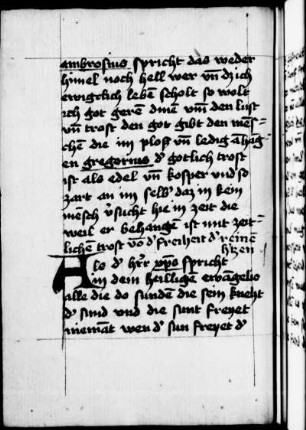 ambrosius spricht das weder
himel noch hell wer vn̄ dz ich
ewigclich lebē scholt so wolt
ich got gerē dinē vm̄ den lust
vn̄ trost den got gibt den mēs-
chē die im plosz vn̄ ledig ahāg-
en gregorius d' gotlich trost
ist als edel vn̄ kosper vnd so
zart an im selb' daz in kein
mēsch v'sucht hie in zeit die
weil er behangē ist mit zeit-
lichē trost vō d' freiheit d' reinē
h'tzen
Als d' h'r xp̄s spricht
in dem heiligē ewāgelio
alle die do sundē die sein knecht
d' sund vnd die sunt freyet
niemāt wen d' sun freyet d'